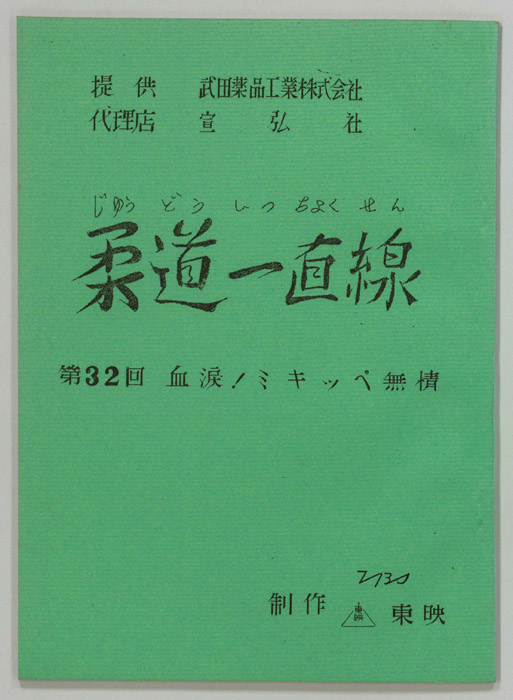 提供 武田薬品工業株式会社
代理店 宣弘社
じゅう どう いっ ちょく せん
柔道一直線
第32回 血涙!ミキッペ無情
TBS
制作 東映 東映